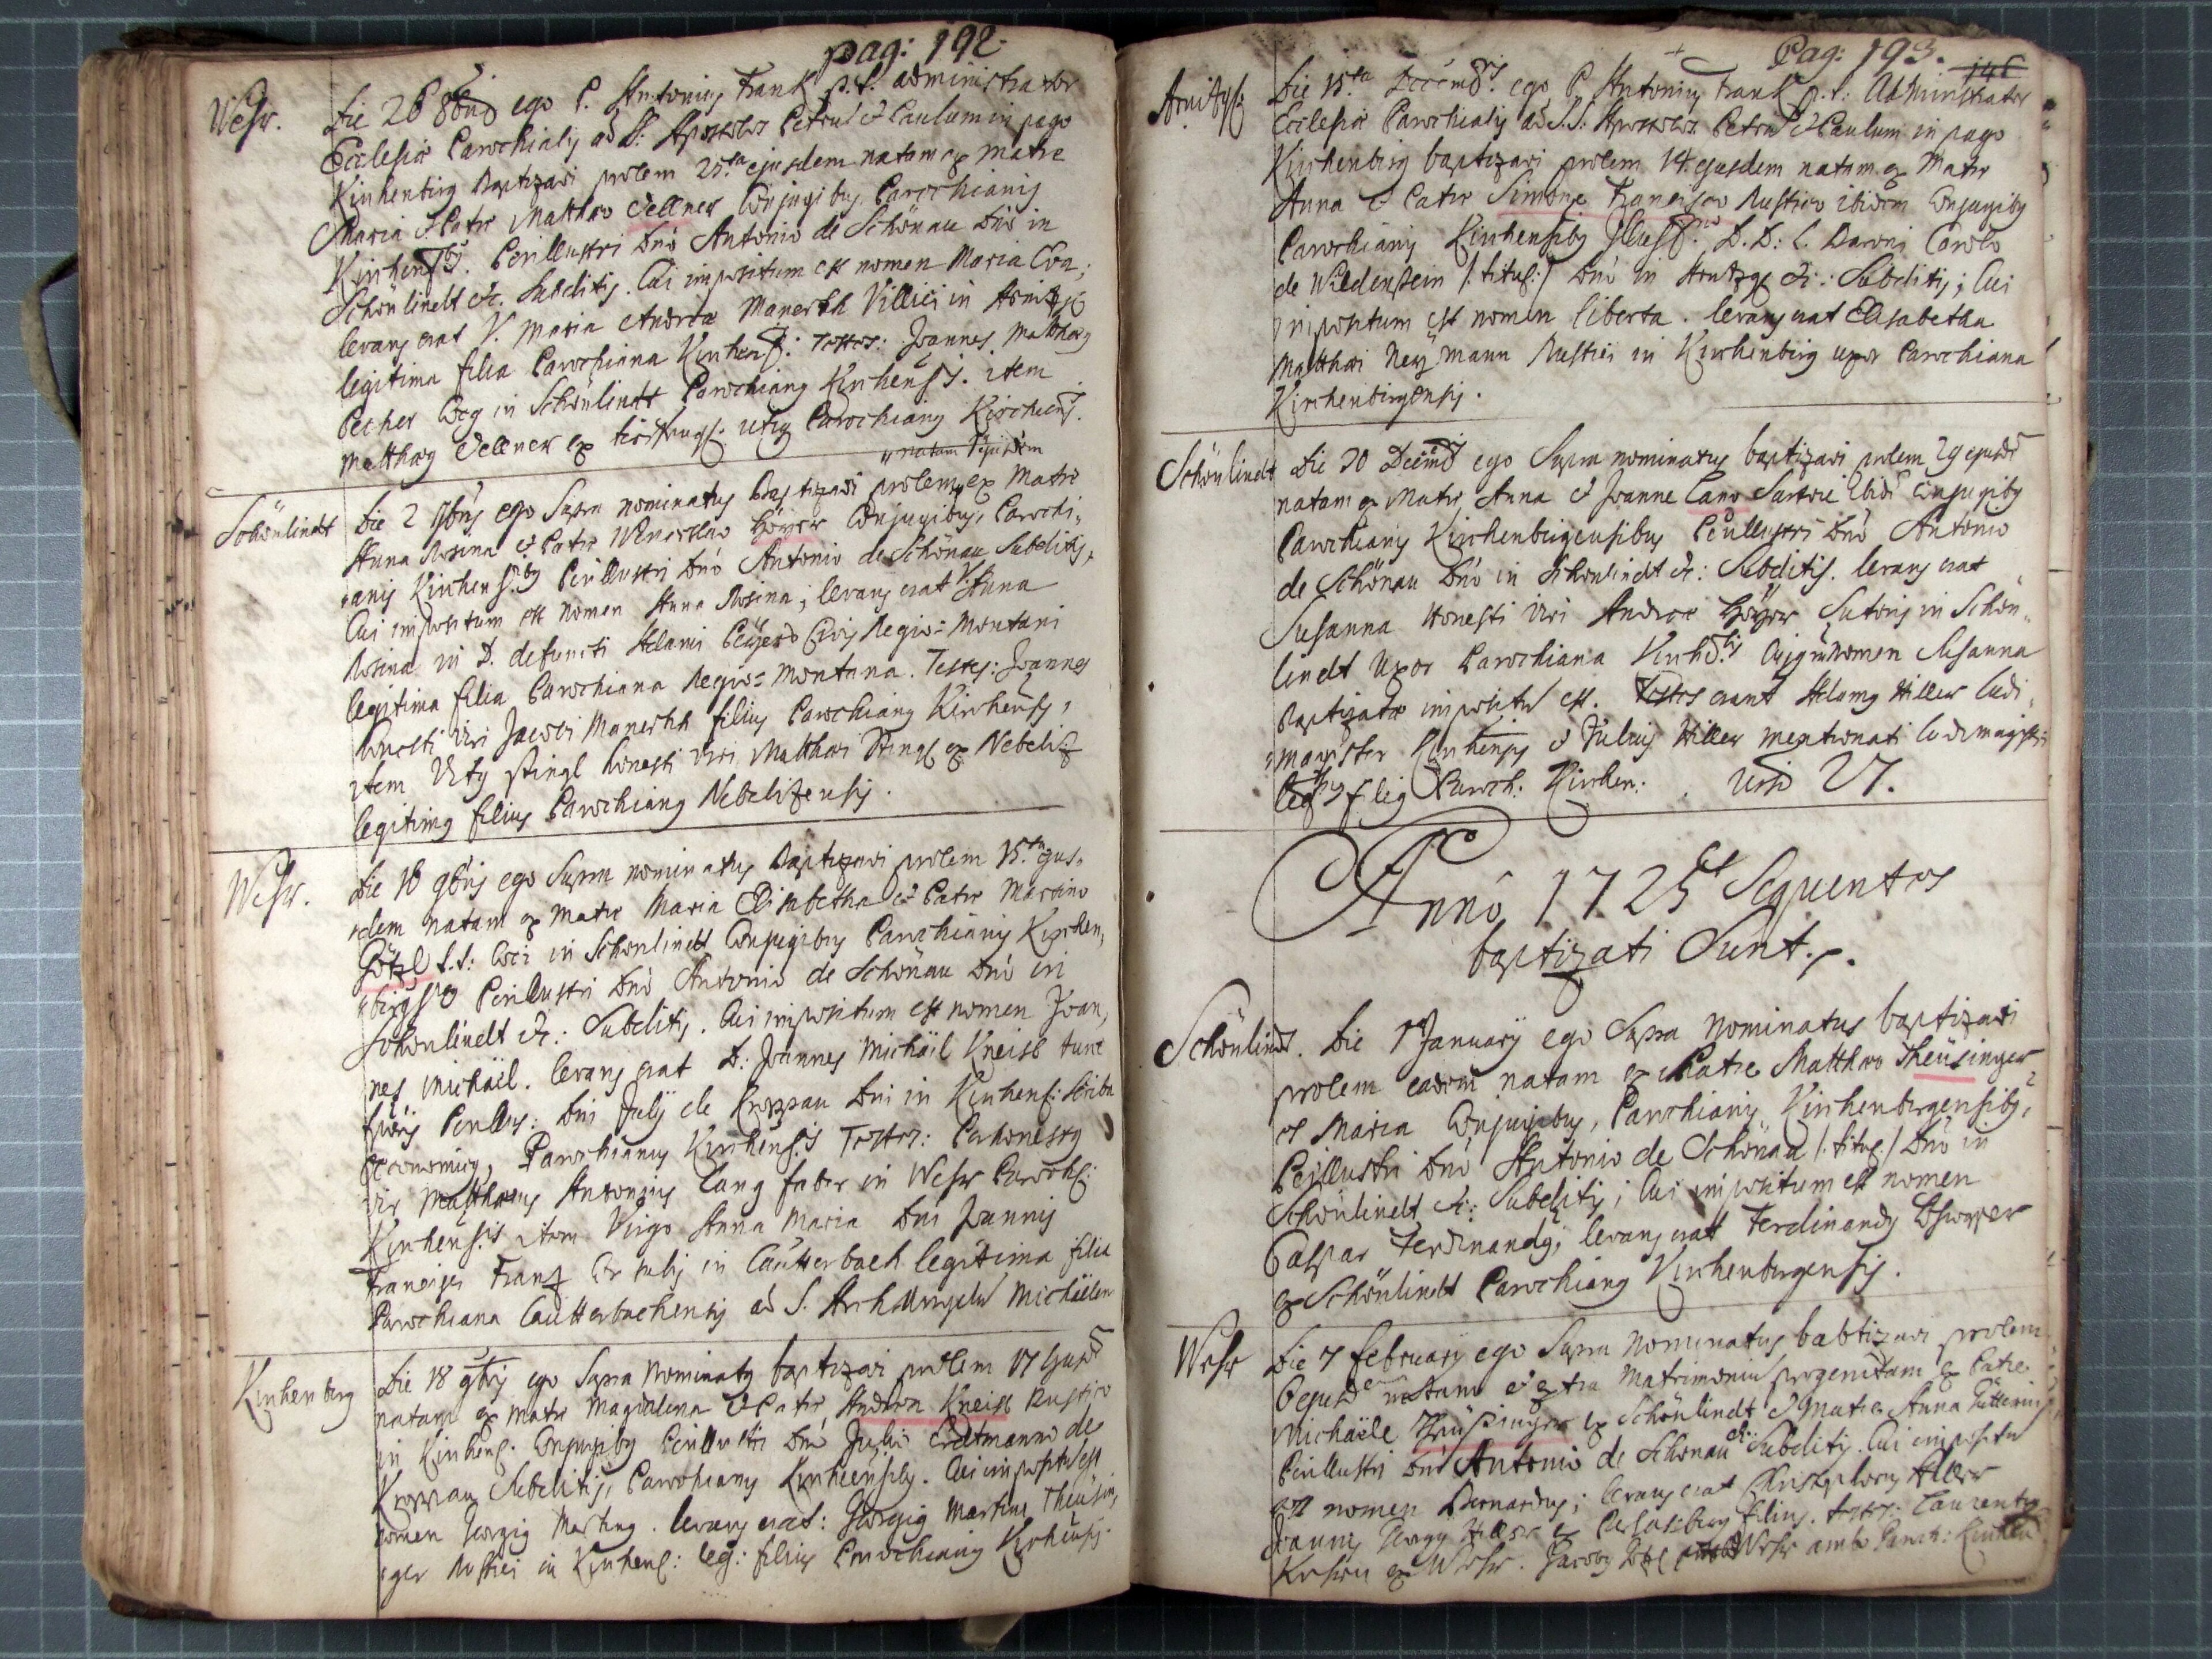 pag: 192.
Wehr.
Die 26 8bris ego P. Antonius Frank p.t. administrator
Ecclesiae Parochialis ad SS: Apostolos Petrum et Paulum in pago
Kirchenbirg baptizavi prolem 25ta ejusdem natam ex Matre
Maria et Patre Matthaeo Vellner Conjugibus, Parochianis
Kirchensibus. Perillustri Dno Antonio de Schönau Dno in
Schönlindt etc. Subditis. Cui impositum est nomen Maria Eva;
levans erat V. Maria Andreae Manerth Villici in
legitima filia Parochiana Kirchens: Testes: Joannes Matthaeus
Pecher in Schönlindt Parochianus Kirchensis. item
Matthaeus Vellner ex Parochianus Kirchens.
natam ejusdem
Schönlindt
Die 2 9bris ego Supra nominatus baptizavi prolem ex Matre
Anna Rosina et Patre Wenceslao Höyer Conjugibus, Parochi-
anis Kirchensibus Perillustri Dno Antonio de Schönau Subditis,
Cui impositum est nomen Anna Rosina; levans erat V. Anna
Rosina in D. defuncti Adami Civis Regio=montani
legitima filia Parochiana Regio=montana. Testes: Joannes
Honesti viri Jacobi Manerth filius Parochianus Kirchensis,
item Vitus Stingl honesti viri Matthaei Stingl ex Nebeliz
legitimus filius Parochianus Nebelizensis.
Wehr.
Die 16 9bris ego Supra nominatus baptizavi prolem 15ta ejus-
dem natam ex Matre Maria Elisabetha et Patre Martino
Götzl in Schönlindt Conjugibus Parochianis Kirchen-
Perillustri Dno Antonio de Schönau Dno in
Schönlindt etc: Subditis. Cui impositum est nomen Joan-
nes Michael. levans erat D: Joannes Michäel Kneisl tunc
Perillus: Dni Julij de Dni in Kirchens: scriba
Parochianus Kirchensis Testes: Perhonestus
vir Matthaeus Antonius Lang faber in Wehr Paroch:
Kirchensis item Virgo Anna Maria Dni Joannis
Francisci Franz in Lautterbach legitima filia
Parochiana Lautterbachensis ad S. Archangelum Michäelem
Kirchenbirg
Die 18 9bris ego Supra Nominatus baptizavi prolem 17 ejusd
natam ex Matre Magdalena et Patre Andrea Kneisl Rustico
in Kirchens. Conjugibus Perillustri Dno Julio Erdtmanno de
Subditis, Parochianis Kirchensibus. Cui impositum est
nomen Georgius Martinus. levans erat: Georgius Martini Theusin-
ger Rustici in Kirchens: leg: filius Parochianus Kirchensis.
Pag: 193.
Die 15ta Decembris ego P. Antonius Frank p.t: Administrator
Ecclesiae Parochialis ad S.S: Apostolos Petrum et Paulum in pago
Kirchenbirg baptizavi prolem 14 ejusdem natam ex Matre
Anna et Patre Simone Francisco Rustico ibidem Conjugibus
Parochianis Kirchensibus D.D: L. Baroni Carolo
de Wildenstein /: titul:/ Dno in etc: Subditis; Cui
impositum est nomen liberta. levans erat Elisabetha
Matthaei Neymann Rustici in Kirchenbirg uxor Parochiana
Kirchenbirgensis.
Schönlindt
Die 30 Decembris ego Supra nominatus baptizavi prolem 29 ejusdem
natam ex Matre Anna et Joanne Lang Sartore ibid Conjugibus
Parochianis Kirchenbirgensibus Perillustri Dno Antonio
de Schönau Dno in Schönlindt etc: Subditis. levans erat
Susanna Honesti viri Andreae Höyer Sutoris in Schön-
lindt Uxor Parochiana Cujus nomen Susanna
Baptizatae impositum est. Testes erant Adamus Hiller ludi-
magister Kirchensis et Julius Hiller mentionati ludimagistri
filius Paroch: Kirchen: 27.
Anno 1725 Sequentes
baptizati Sunt.
Schönlindt.
Die 1 January ego Supra Nominatus baptizavi
prolem eadem natam ex Patre Matthaeo Theusinger
et Maria Conjugibus, Parochianis Kirchenbergensibus,
Perillustri Dno Antonio de Schönau /: titul:/ Dno in
Schönlindt etc: Subditis; Cui impositum est nomen
Caspar Ferdinandus; levans erat Ferdinandus
ex Schönlindt Parochianus Kirchenbergensis.
Wehr
Die 7 February ego Supra Nominatus babtizavi prolem
6 ejusdem natam et extra Matrimonium progenitam ex Patre
Michäele Theusinger ex Schönlindt et Matre Anna
Perillustri Dno Antonio de Schönau etc: Subditis. Cui impositum
est nomen Bernardus; levans erat Christophorus
Joannis Georgy ex filius. testes: Laurentius
ex Wehr. Jacobus ex Wehr ambo Paroch: Kirchen